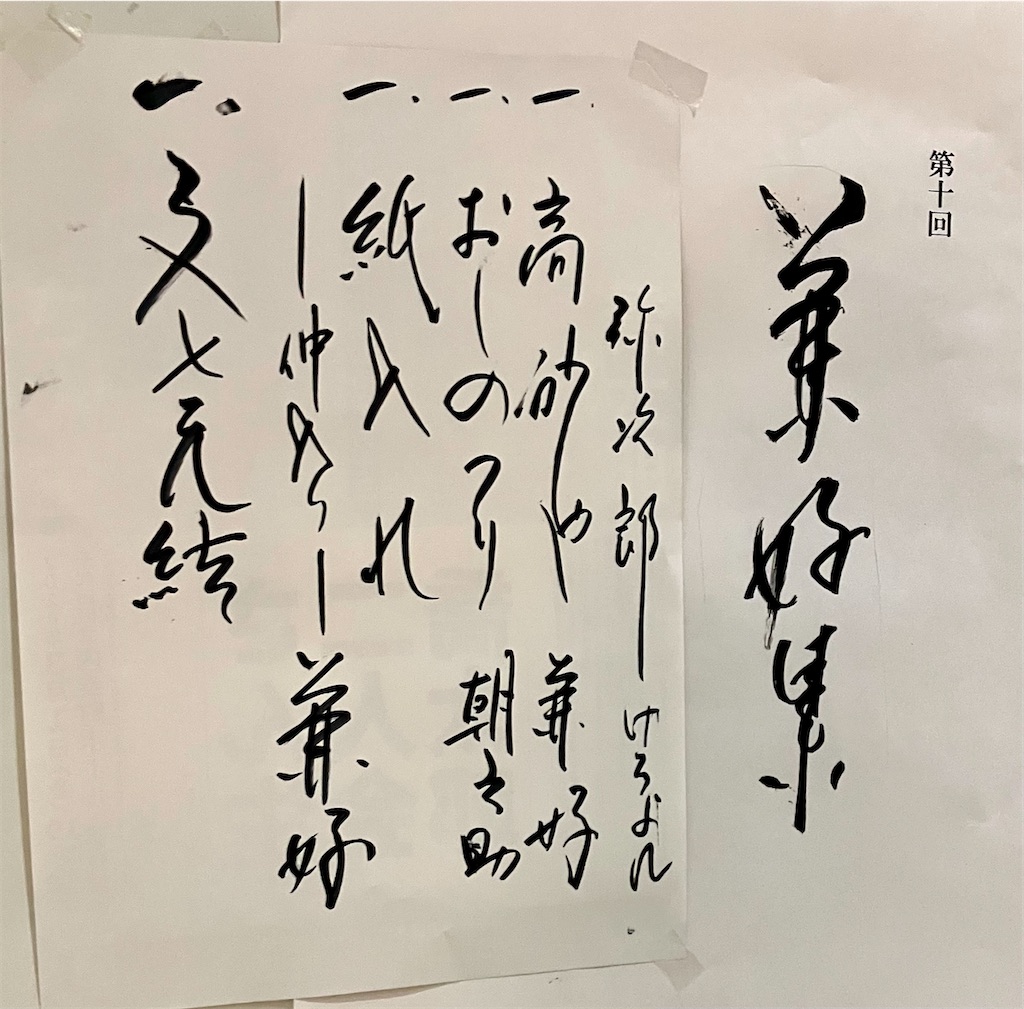 第十回
兼好集
弥次郎 けろよん
一、高砂や 兼好
一、おしのつり 朝之助
一、紙入れ
ー仲入りー 兼好
一、文七元結